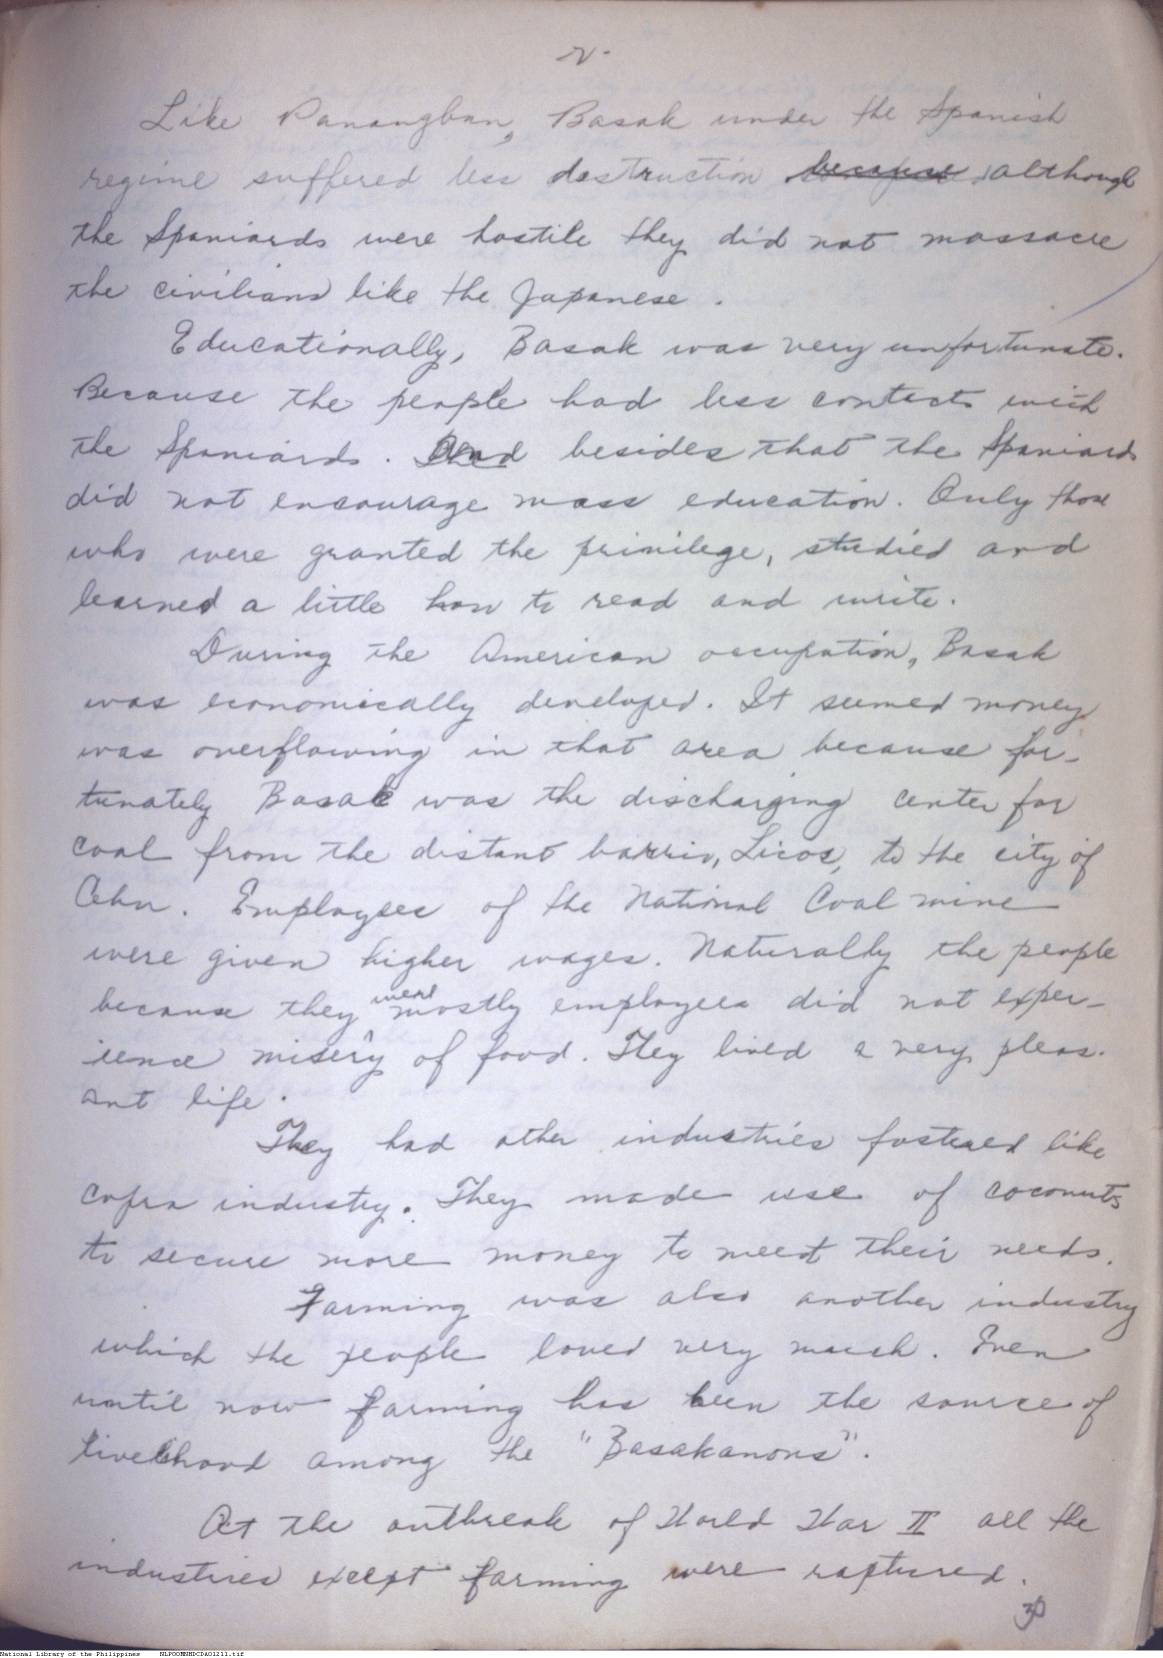 2.
Like Panangban, Basak under the Spanish
regime suffered less destruction because although
the Spaniards were hostile they did not massacre
the civilians like the Japanese.
Educationally, Basak was very unfortunate.
Because the people had less contacts with
the Spaniards. And besides that the Spaniards
did not encourage mass education. Only those
who were granted the privilege, studied and
learned a little how to read and write.
During the American occupation, Basak
was economically developed. It seemed money
was overflowing in that area because for-
tunately Basak was the discharging center for
coal from the distant barrio, Licos, to the city of
Cebu. Employees of the National Coal mine
were given higher wages. Naturally the people
because they were mostly employees did not exper-
ience misery of food. They lived a very pleas-
ant life.
They had other industries fostered like
copra industry. They made use of coconuts
to secure more money to meet their needs.
Farming was also another industry
which the people loved very much. Even
until now farming has been the source of
livelihood among the "Basakanons".
At the outbreak of World War II all the
industries except farming were raptured.
30
National Library of the Philippines NLPOOMNHDCDA01211.tif